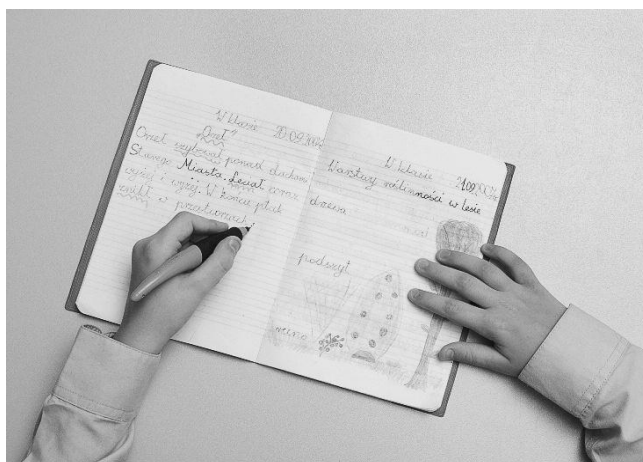 W klasie 20.09.2002
Orzeł?
Orzeł szybował ponad dachem
Starego Miasta. Leciał coraz
wyżej i wyżej. W końcu ptak
znikł w przestworzach
W klasie 21.09.2002
Warstwy roślinności w lesie
drzewa
podszyt
runo